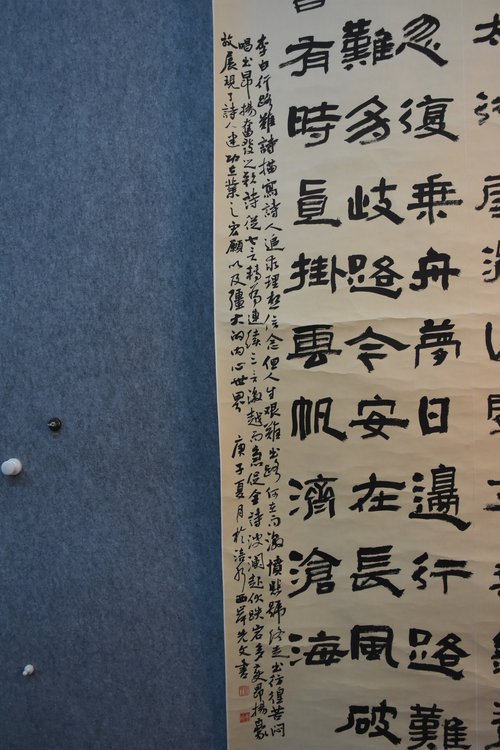 忽復乘舟夢日邊行路難
難多歧路今安在長風破
有時直掛雲帆濟滄海
李白行路難詩描寫詩人追求理想信念但人生艱難出路何在而激憤悲號終走出彷徨苦悶
唱出昂揚奮發之歌詩從七言轉為連續三言激越而急促全詩波瀾起伏跌宕多變昂揚豪
放展現了詩人建功立業之宏願以及疆大的內心世界 庚子夏月於涪州西岸先文書